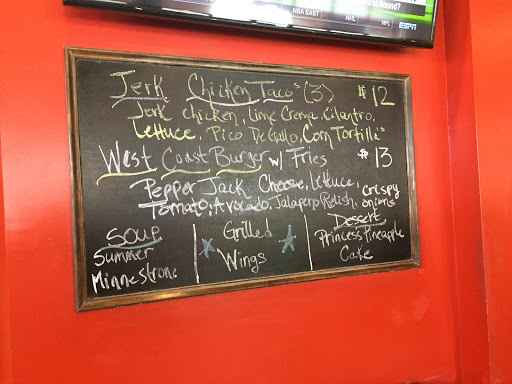 First Round?
NBA EAST NHL NFL ESPN
Jerk Chicken Taco's (3) $12
Jerk chicken, Lime Crema, Cilantro,
Lettuce, Pico De Gallo, Corn Tortilla"
West Coast Burger w/ Fries $13
Pepper Jack Cheese, lettuce,
Tomato, Avocado, Jalapeno Relish, crispy onions
Soup
Summer
Minnestrone
Grilled
Wings
Dessert
Princess Pineapple
Cake